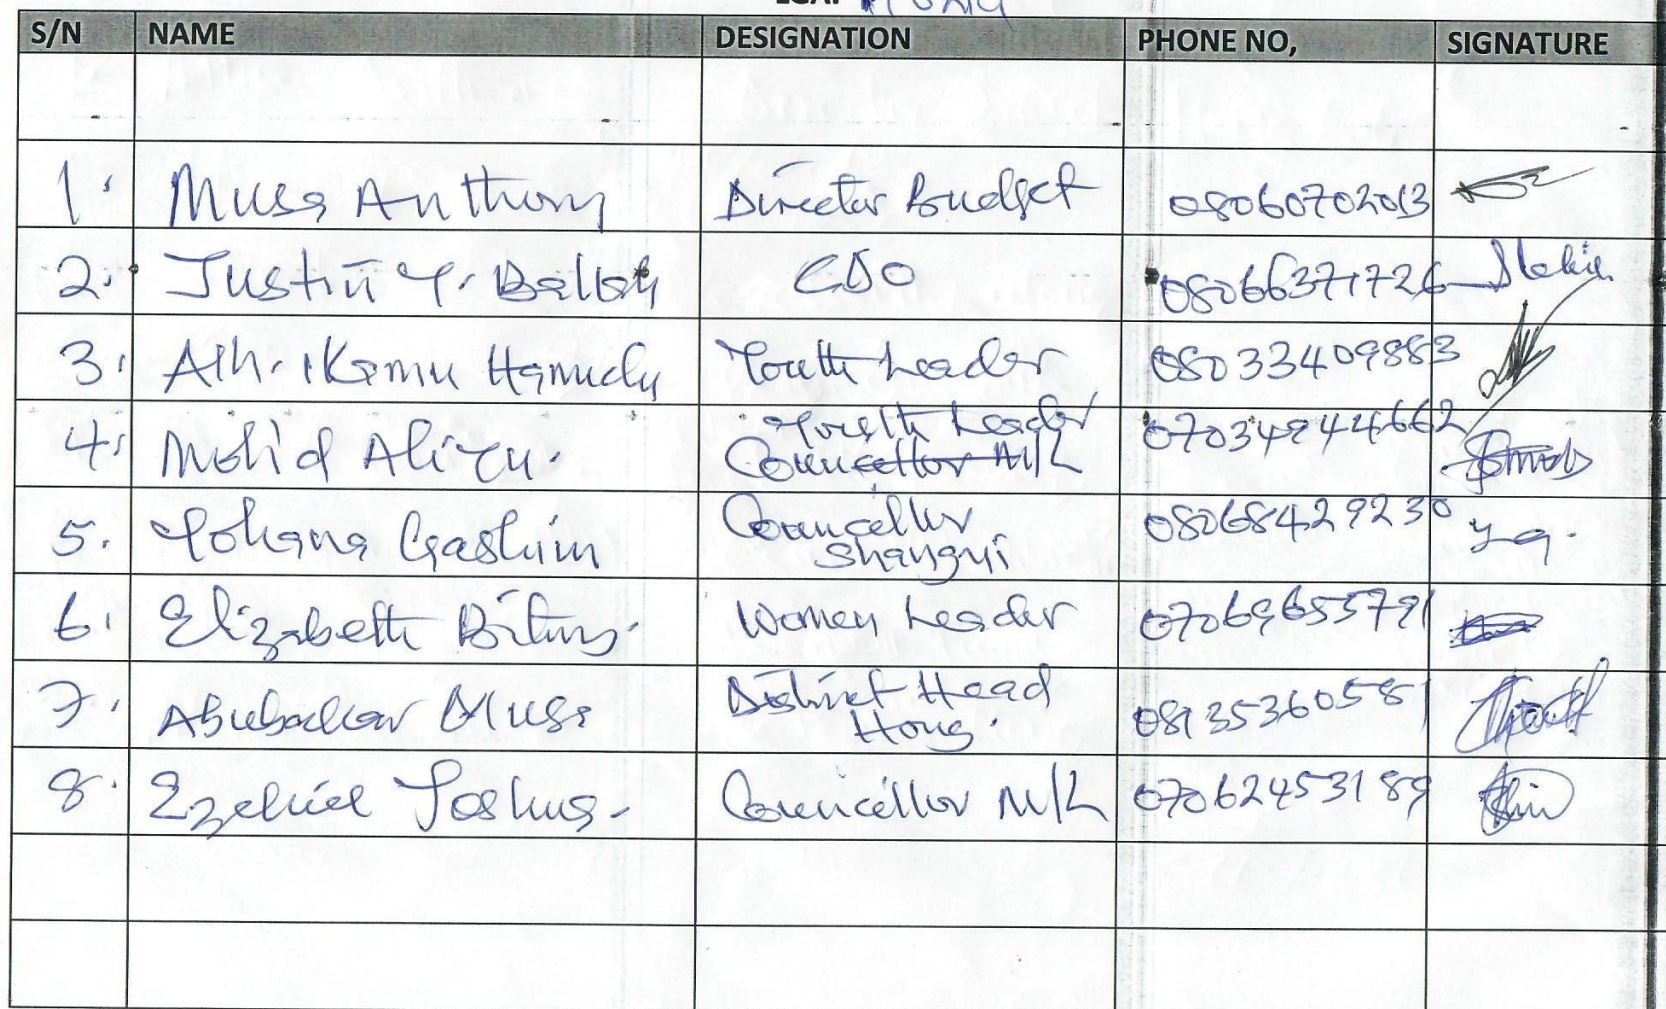 LGA: Hong
S/N NAME DESIGNATION PHONE NO, SIGNATURE
1. Musa Anthony Director Budget 08060702013
2. Justin Y. Ballah CDO 08066371726
3. Alh. Ikamu Hamudu Youth Leader 08033409883
4. Mohd Aliyu. Youth Leader 07034944662
Councellor M/L
5. Yohana Gashim Councellor 08068429230 Y.G.
Shangui
6. Elizabeth Bitrus. Women Leader 07069655791
7. Abubakar Musa District Head 08135360581
Hong.
8. Ezekiel Joshua. Councillor M/L 07062453189